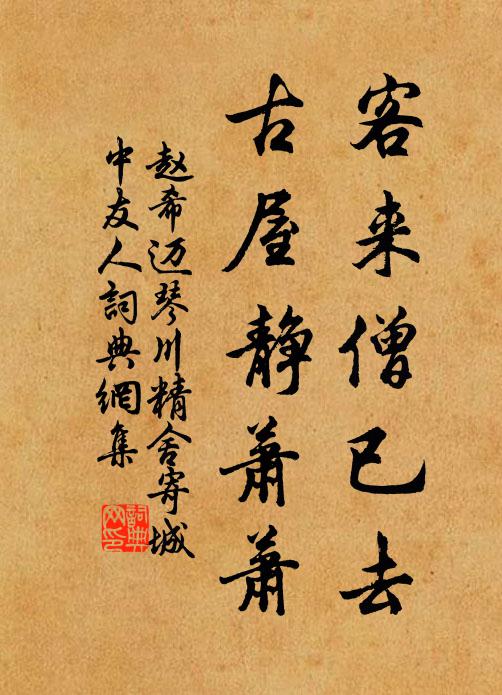 客来僧已去
古屋静萧萧
赵希迈琴川精舍寄城
中友人詞典網集
詞典網印